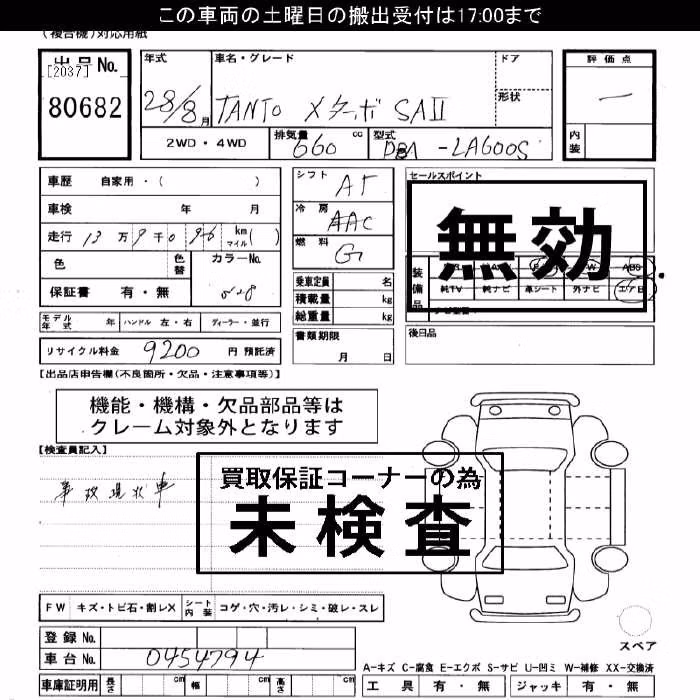 この車両の土曜日の搬出受付は17:00まで
(複合機)対応用紙
出品No. [2037] 80682
年式 28/8月
車名・グレード TANTO メターボ SAII
ドア
形状
評価点 一
内装
2WD・4WD
排気量 660 cc
型式 DBA-LA600S
車歴 自家用・( )
車検 年 月
走行 13万9千096 km マイル( )
色 色替 カラーNo. S28
保証書 有・無
モデル年式 年 ハンドル 左・右 ディーラー・並行
リサイクル料金 9200 円 預託済
シフト AT
冷房 AAC
燃料 G
乗車定員 名
積載量 kg
総重量 kg
書類期限 月 日
セールスポイント
無効
装備品
純TV 純ナビ 革シート 外ナビ エアB
ABS
後日品
【出品店申告欄(不良箇所・欠品・注意事項等)】
機能・機構・欠品部品等は
クレーム対象外となります
【検査員記入】
事故現状車
買取保証コーナーの為
未検査
FW キズ・トビ石・割レX シート内装 コゲ・穴・汚レ・シミ・破レ・スレ
登録No.
車台No. 0454794
車庫証明用 長さ cm 幅 cm 高さ cm
スペア
A-キズ C-腐食 E-エクボ S-サビ U-凹ミ W-補修 XX-交換済
工具 有・無 ジャッキ 有・無